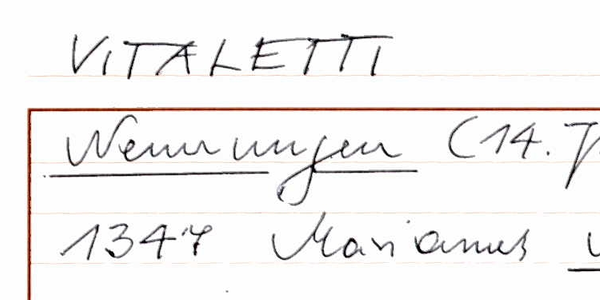 VITALETTI
Nennungen (14. J
1347 Marianus v